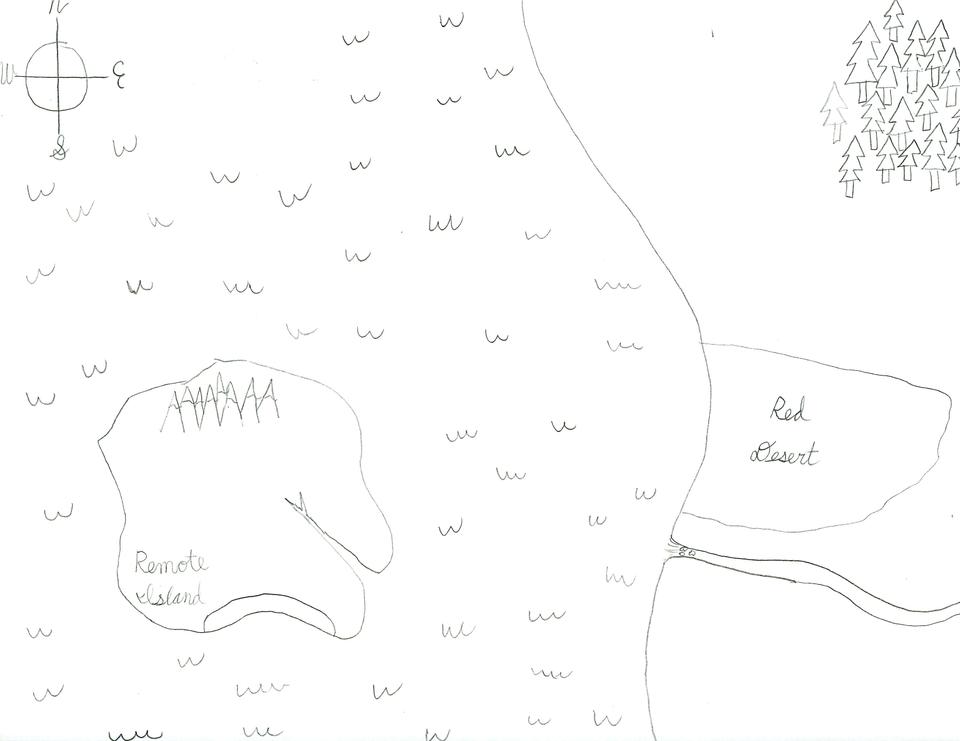 N
W E
S
Red
Desert
Remote
Island